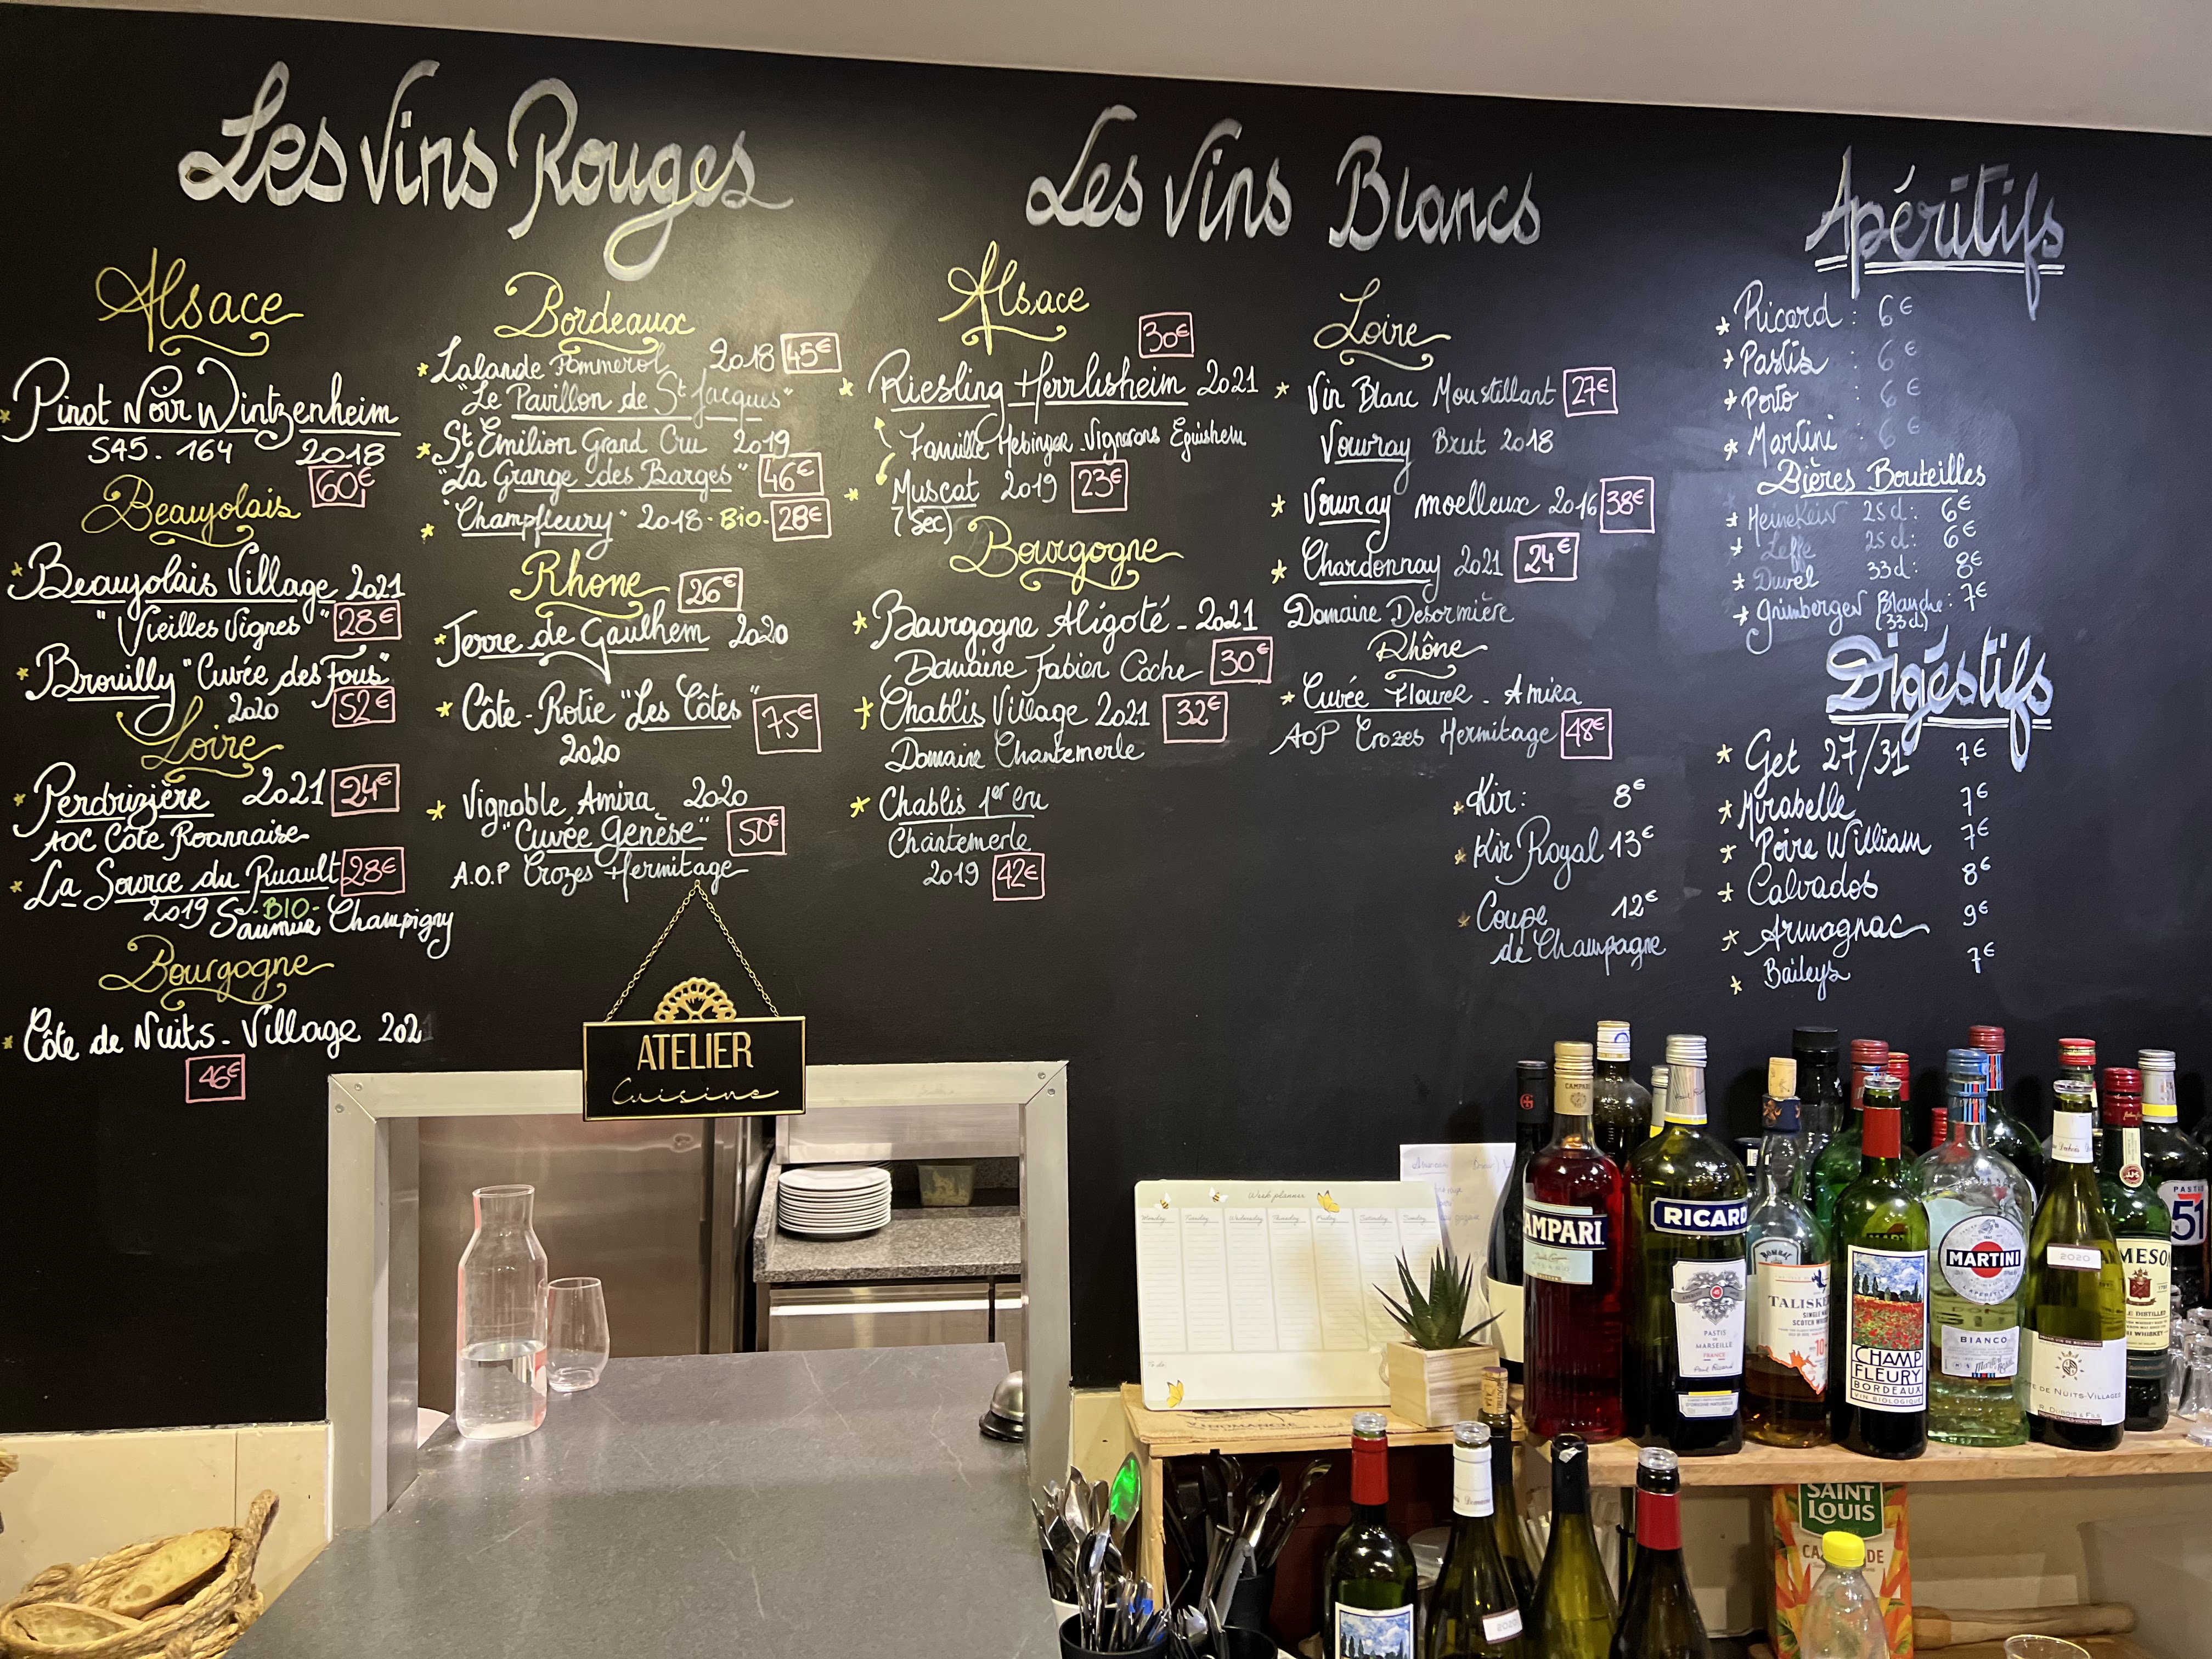 Les Vins Rouges
Alsace
* Pinot Noir Wintzenheim
S45. 164 2018
60€
Beaujolais
* Beaujolais Village 2021
"Vieilles Vignes" 28€
* Brouilly "Cuvée des Fous"
2020 52€
Loire
* Perdrizière 2021 24€
AOC Côte Roannaise
* La Source du Ruault 28€
2019 -BIO-
Saumur Champigny
Bourgogne
* Côte de Nuits - Village 2021
46€
Bordeaux
* Lalande Pommerol 2018 45€
"Le Pavillon de St Jacques"
* St Emilion Grand Cru 2019
"La Grange des Barges" 46€
* "Champfleury" 2018 - BIO - 28€
Rhone 26€
* Terre de Gaulhem 2020
* Côte-Rotie "Les Côtes" 75€
2020
* Vignoble Amira 2020
"Cuvée Genèse" 50€
A.O.P Crozes Hermitage
Les Vins Blancs
Alsace
30€
* Riesling Herrlisheim 2021
Famille Hebinger - Vignerons Eguishem
* Muscat 2019 23€
(Sec)
Bourgogne
* Bourgogne Aligoté - 2021
Domaine Fabien Coche 30€
* Chablis Village 2021 32€
Domaine Chantemerle
* Chablis 1er Cru
Chantemerle
2019 42€
Loire
* Vin Blanc Moustillant 27€
Vouvray Brut 2018
* Vouvray moelleux 2016 38€
* Chardonnay 2021 24€
Domaine Desormière
Rhône
* Cuvée Flower - Amira
AOP Crozes Hermitage 48€
* Kir : 8€
* Kir Royal 13€
* Coupe 12€
de Champagne
Apéritifs
* Ricard : 6€
* Pastis : 6€
* Porto : 6€
* Martini : 6€
Bières Bouteilles
* Heineken 25d : 6€
* Leffe 25d : 6€
* Duvel 33d : 8€
* Grimbergen Blanche : 7€
(33d)
Digéstifs
* Get 27/31 7€
* Mirabelle 7€
* Poire William 7€
* Calvados 8€
* Armagnac 9€
* Baileys 7€
ATELIER
Cuisine
Week planner
Monday Tuesday Wednesday Thursday Friday Saturday Sunday
CAMPARI
AMPARI
RICARD
PASTIS
DE
MARSEILLE
FRANCE
TALISKE
SINGLE
SCOTCH
10
CHAMP
FLEURY
BORDEAUX
VIN BIOLOGIQUE
MARTINI
BIANCO
2020
TE DE NUITS-VILLAGES
R. DUBOIS & FILS
MESON
PASTIS
51
SAINT
LOUIS
2020